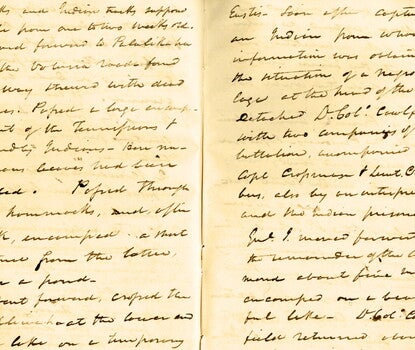 ks and Indian tracks suppos
to from one to two weeks old.
ved forward to Pilaklikaha
the
way strewed with dead
es. Passed a large encamp-
t of the Tennesseans &
ndly Indians - Bon nu-
ous Beeves had been
ed. Passed through
hommocks, and, after
th, encamped a short
ance from the latter,
r a pond-
ent forward, crossed the
at the lower end
lake on a temporary
Eustis- Soon after captu
an Indian from whom
information was obtain
the situation of a Negro
lage at the head of the
Detached Dr. Col. Caulf
with two companies of
battalion, accompanied
Capt Crossman & Lieut. C
ber, also by an interpre
and the Indian prisone
Genl. J. moved forward
the remainder of the
mand about five mi
encamped on a bea
ful lake- Dr. Col. C
field returned abou